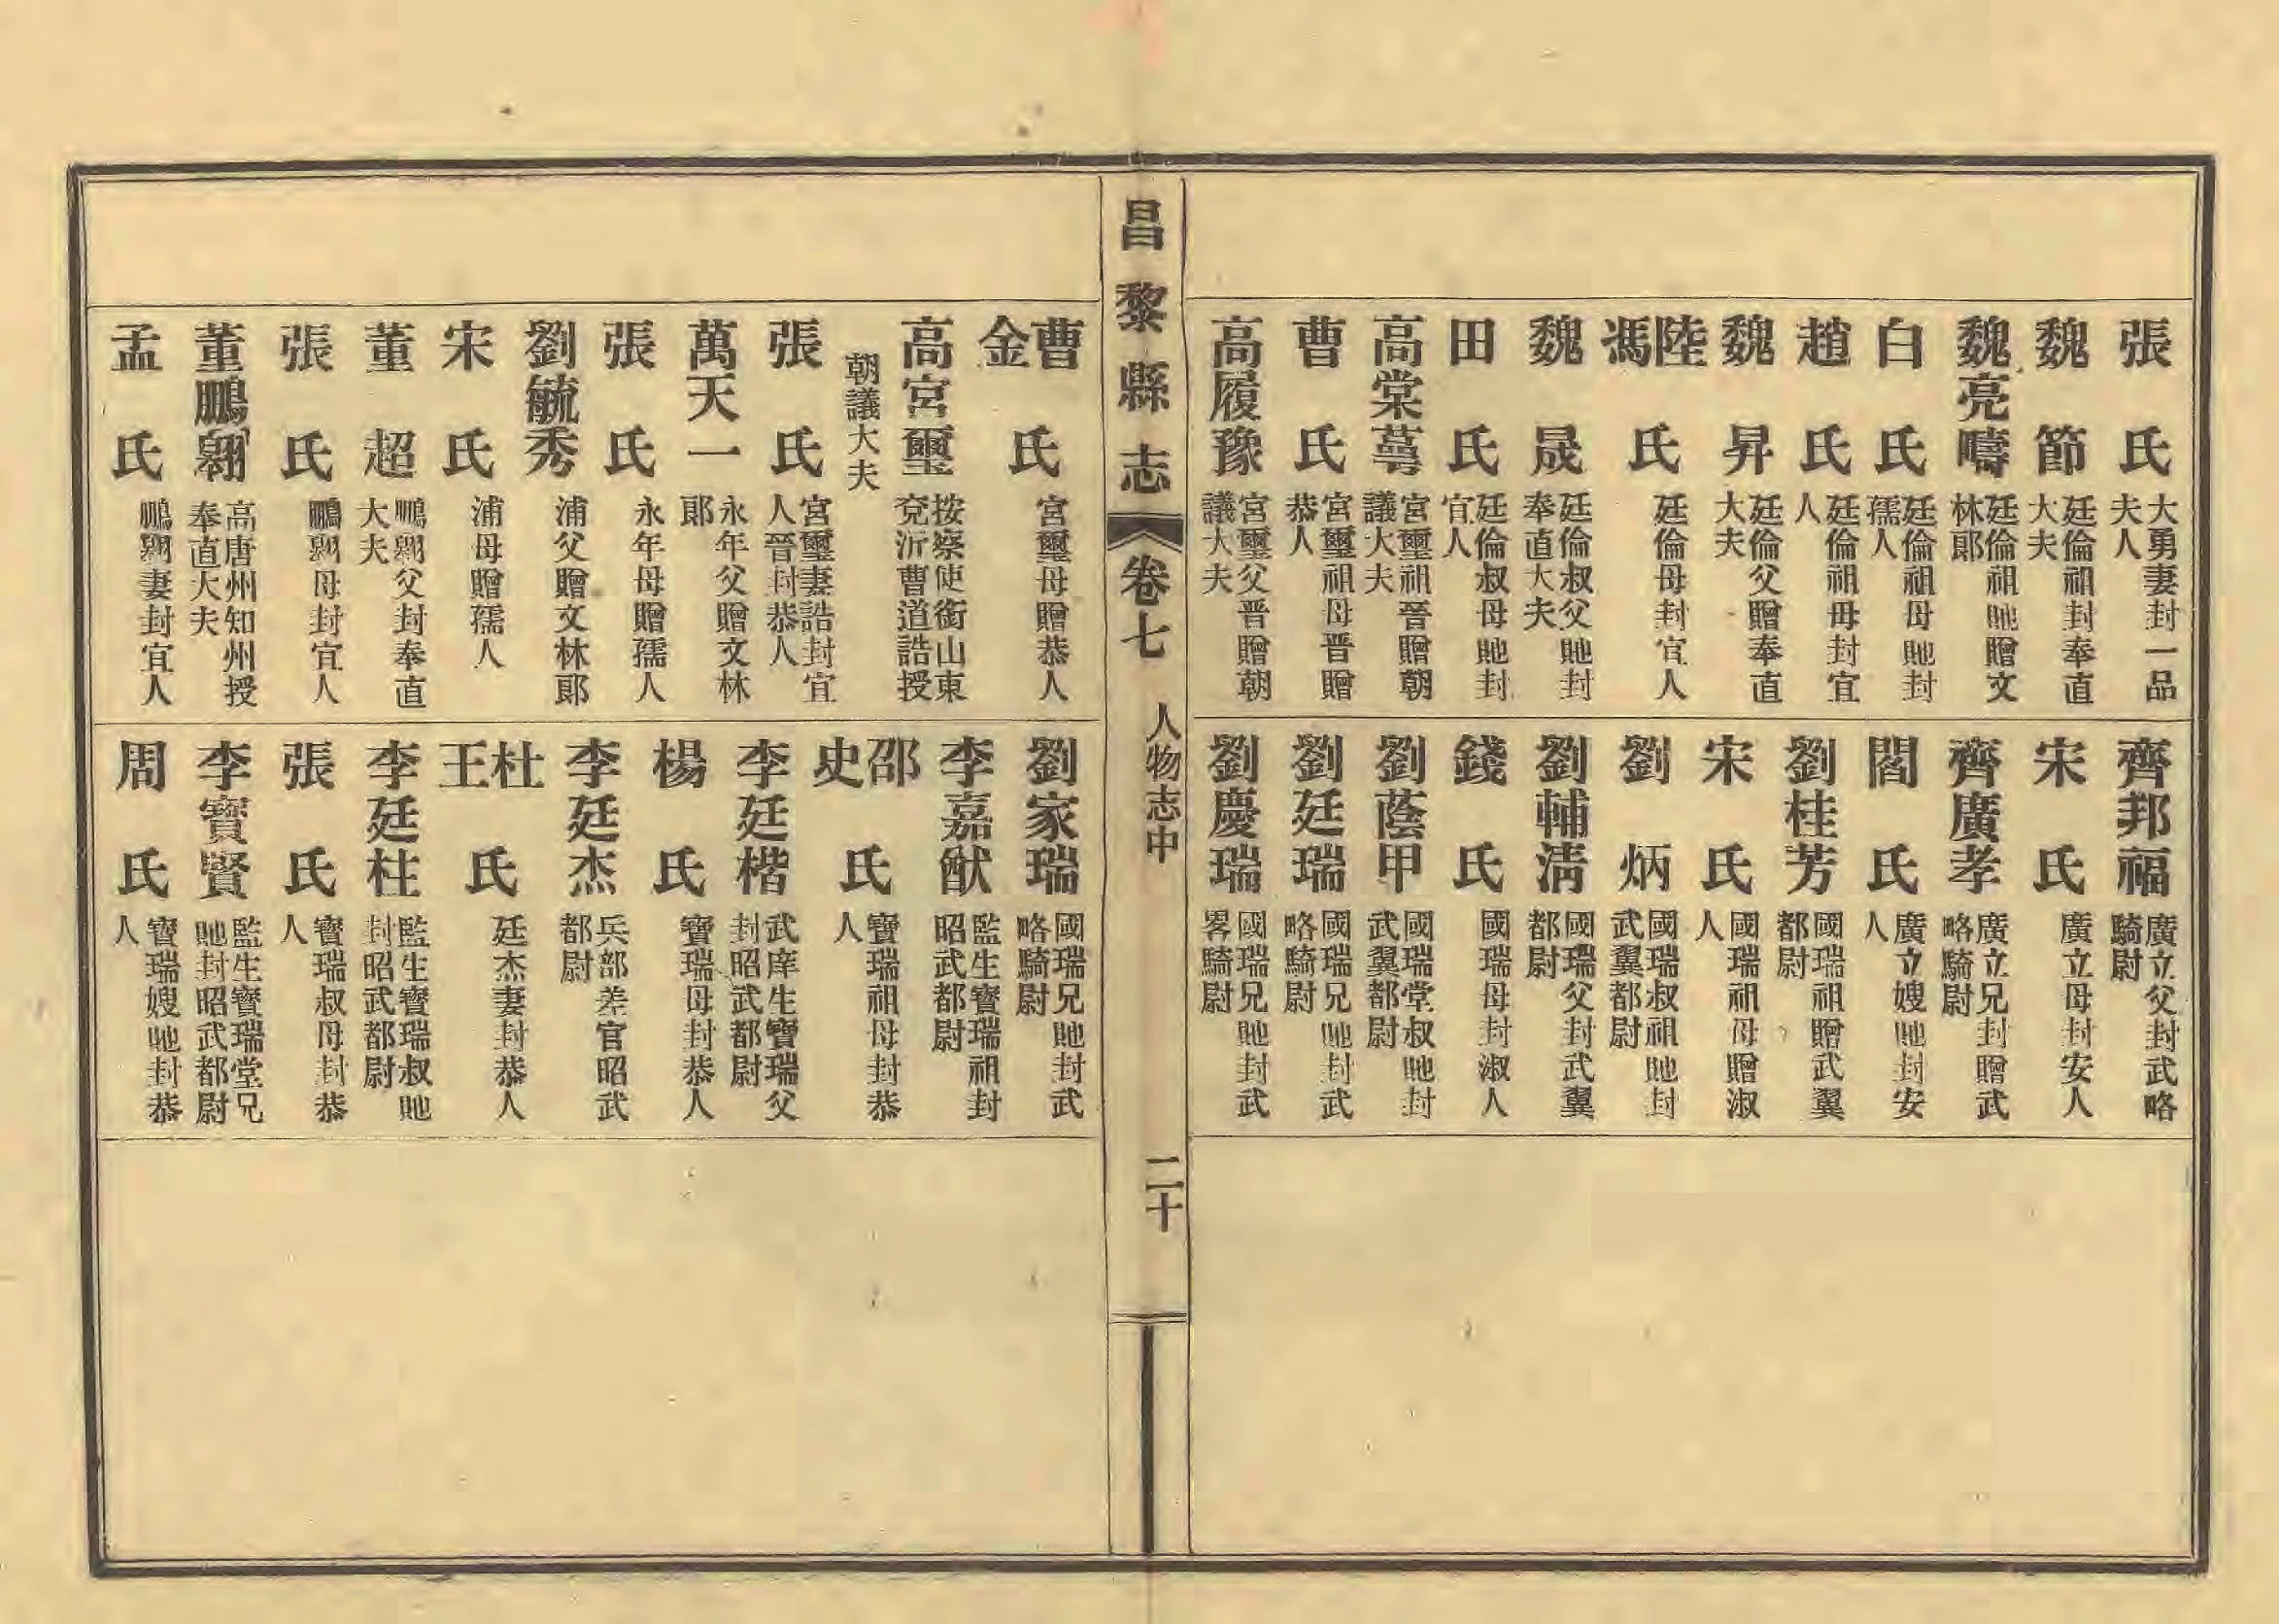 張氏 大勇妻封一品夫人
魏節 廷倫祖封奉直大夫
魏亮疇 廷倫祖貤贈文林郞
白氏 廷倫祖母貤封孺人
趙氏 廷倫祖母封宜人
魏昇 廷倫父贈奉直大夫
陸馮氏 廷倫母封宜人
魏晟 廷倫叔父貤封奉直大夫
田氏 廷倫叔母貤封宜人
高棠蕚 宮璽祖晉贈朝議大夫
曹氏 宮璽祖母晋贈恭人
高履豫 宮璽父晋贈朝議大夫
齊邦福 廣立父封武略騎尉
宋氏 廣立母封安人
齊廣孝 廣立兄封贈武略騎尉
閻氏 廣立嫂貤封安人
劉桂芳 國瑞祖贈武翼都尉
宋氏 國瑞祖母贈淑人
劉炳 國瑞叔祖貤封武翼都尉
劉輔淸 國瑞父封武翼都尉
錢氏 國瑞母封淑人
劉蔭甲 國瑞堂叔貤封武翼都尉
劉廷瑞 國瑞兄貤封武略騎尉
劉慶瑞 國瑞兄貤封武畧騎尉
昌黎縣志 卷七 人物志中 二十
曹金氏 宮璽母贈恭人
高宮璽 按察使銜山東兗沂曹道誥授
朝議大夫
張氏 宮璽妻誥封宜人晉封恭人
萬天一 永年父贈文林郞
張氏 永年母贈孺人
劉毓秀 浦父贈文林郞
宋氏 浦母贈孺人
董超 鵬翶父封奉直大夫
張氏 鵬翶母封宜人
董鵬翶 高唐州知州授奉直大夫
孟氏 鵬翶妻封宜人
劉家瑞 國瑞兄貤封武略騎尉
李嘉猷 監生寶瑞祖封昭武都尉
邵史氏 寶瑞祖母封恭人
李廷楷 武庠生寶瑞父封昭武都尉
楊氏 寶瑞母封恭人
李廷杰 兵部差官昭武都尉
杜王氏 廷杰妻封恭人
李廷柱 監生寶瑞叔貤封昭武都尉
張氏 寶瑞叔母封恭人
李寶賢 監生寶瑞堂兄貤封昭武都尉
周氏 寶瑞嫂貤封恭人